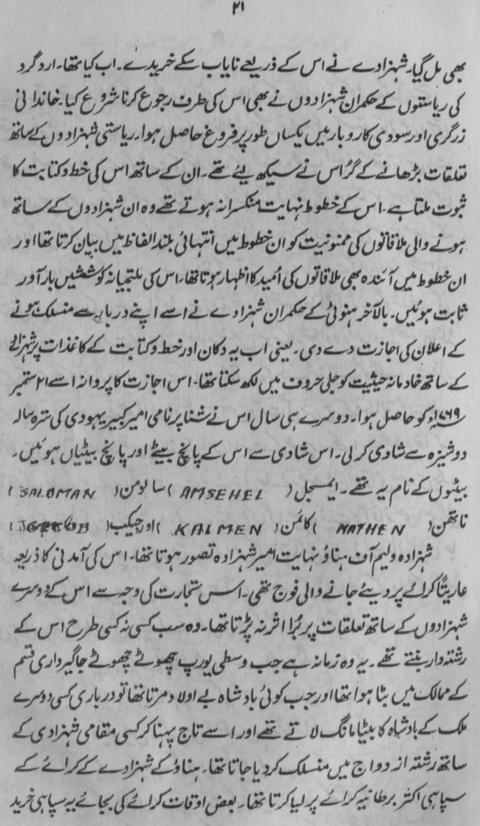 ۲۱
بھی مل گیا۔ شہزادے نے اس کے ذریعے نایاب سکے خریدے۔ اب کیا تھا۔ ارد گرد
کی ریاستوں کے حکمران شہزادوں نے بھی اس کی طرف رجوع کرنا شروع کیا۔ خاندانی
زرگری اور سودی کاروبار میں یکساں طور پر فروغ حاصل ہوا۔ ریاستی شہزادوں کے ساتھ
تعلقات بڑھانے کے گُر اس نے سیکھ لیے تھے۔ ان کے ساتھ اس کی خط و کتابت کا
ثبوت ملتا ہے۔ اس کے خطوط نہایت منکسرانہ ہوتے تھے وہ ان شہزادوں کے ساتھ
ہونے والی ملاقاتوں کی ممنونیت کو ان خطوط میں انتہائی بلند الفاظ میں بیان کرتا تھا اور
ان خطوط میں آئندہ بھی ملاقاتوں کی اُمید کا اظہار ہوتا تھا۔ اس کی ملتجیانہ کوششیں بارآور
ثابت ہوئیں۔ بالآخر ہنوئی کے حکمران شہزادے نے اسے اپنے دربار سے منسلک ہونے
کے اعلان کی اجازت دے دی۔ یعنی اب یہ دکان اور خط و کتابت کے کاغذات پر شہزادے
کے ساتھ خادمانہ حیثیت کو جلی حروف میں لکھ سکتا تھا۔ اس اجازت کا پروانہ اسے ۲۱ ستمبر
۱۷۶۹ء کو حاصل ہوا۔ دوسرے ہی سال اس نے شناپر نامی امیر کبیر یہودی کی سترہ سالہ
دوشیزہ سے شادی کر لی۔ اس شادی سے اس کے پانچ بیٹے اور پانچ بیٹیاں ہوئیں۔
بیٹوں کے نام یہ تھے۔ ایمسچل (AMSEHEL) سالومن (SALOMAN)
ناتھن (NATHEN) کالمن (KALMEN) اور جیکب
شہزادہ ولیم آف ہناؤ نہایت امیر شہزادہ تصور ہوتا تھا۔ اس کی آمدنی کا ذریعہ
عاریتاً کرائے پر دیئے جانے والی فوج تھی۔ اس تجارت کی وجہ سے اس کے دوسرے
شہزادوں کے ساتھ تعلقات پر بُرا اثر نہ پڑتا تھا۔ وہ سب کسی نہ کسی طرح اس کے
رشتہ دار بنتے تھے۔ یہ وہ زمانہ ہے جب وسطی یورپ چھوٹے چھوٹے جاگیرداری قسم
کے ممالک میں بٹا ہوا تھا اور جب کوئی بادشاہ بے اولاد مرتا تھا تو درباری کسی دوسرے
ملک کے بادشاہ کا بیٹا مانگ لاتے تھے اور اسے تاج پہنا کر کسی مقامی شہزادی کے
ساتھ رشتہ ازدواج میں منسلک کر دیا جاتا تھا۔ ہناؤ کے شہزادے کے کرائے کے
سپاہی اکثر برطانیہ کرائے پر لیا کرتا تھا۔ بعض اوقات کرائے کی بجائے یہ سپاہی خرید